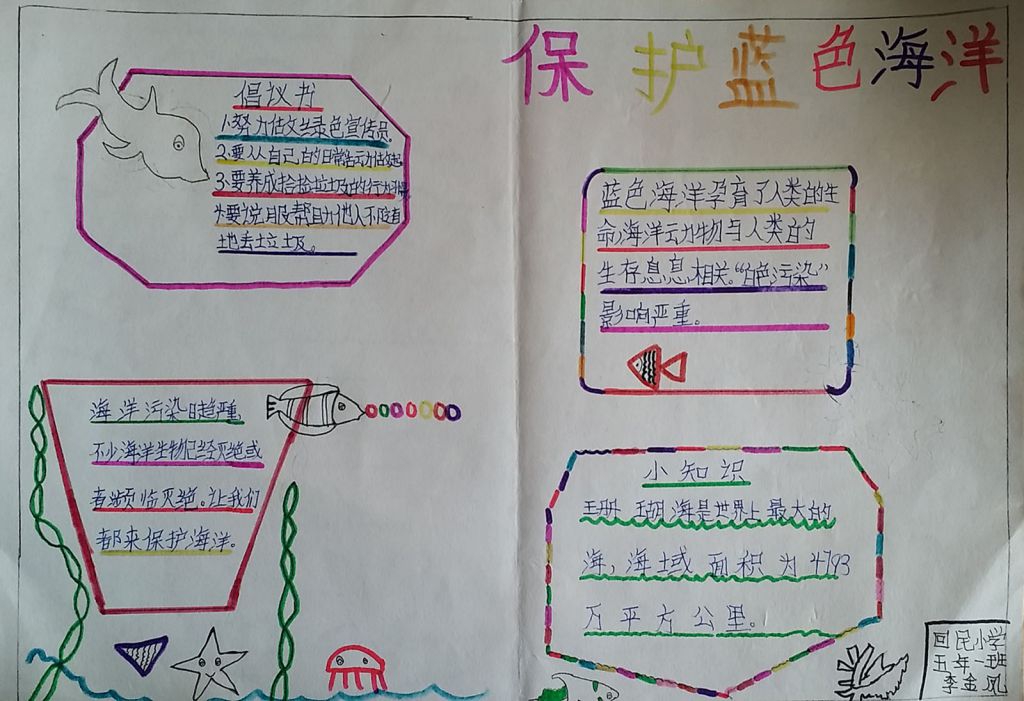 保护蓝色海洋
倡议书
1.努力做文
绿色宣传员
2.要从自己的日常活动做起
3.要养成拾捡垃圾的行为
4.要说服帮助他人不随着
地丢垃圾。
蓝色海洋孕育了人类的生
命,海洋动物与人类的
生存息息相关。“白色污染”
影响严重。
海洋污染日趋严重,
不少海洋生物已经灭绝或
者濒临灭绝。让我们
都来保护海洋。
小知识
珊瑚海是世界上最大的
海,海域面积为4793
万平方公里。
回民小学
五年一班
李金凤